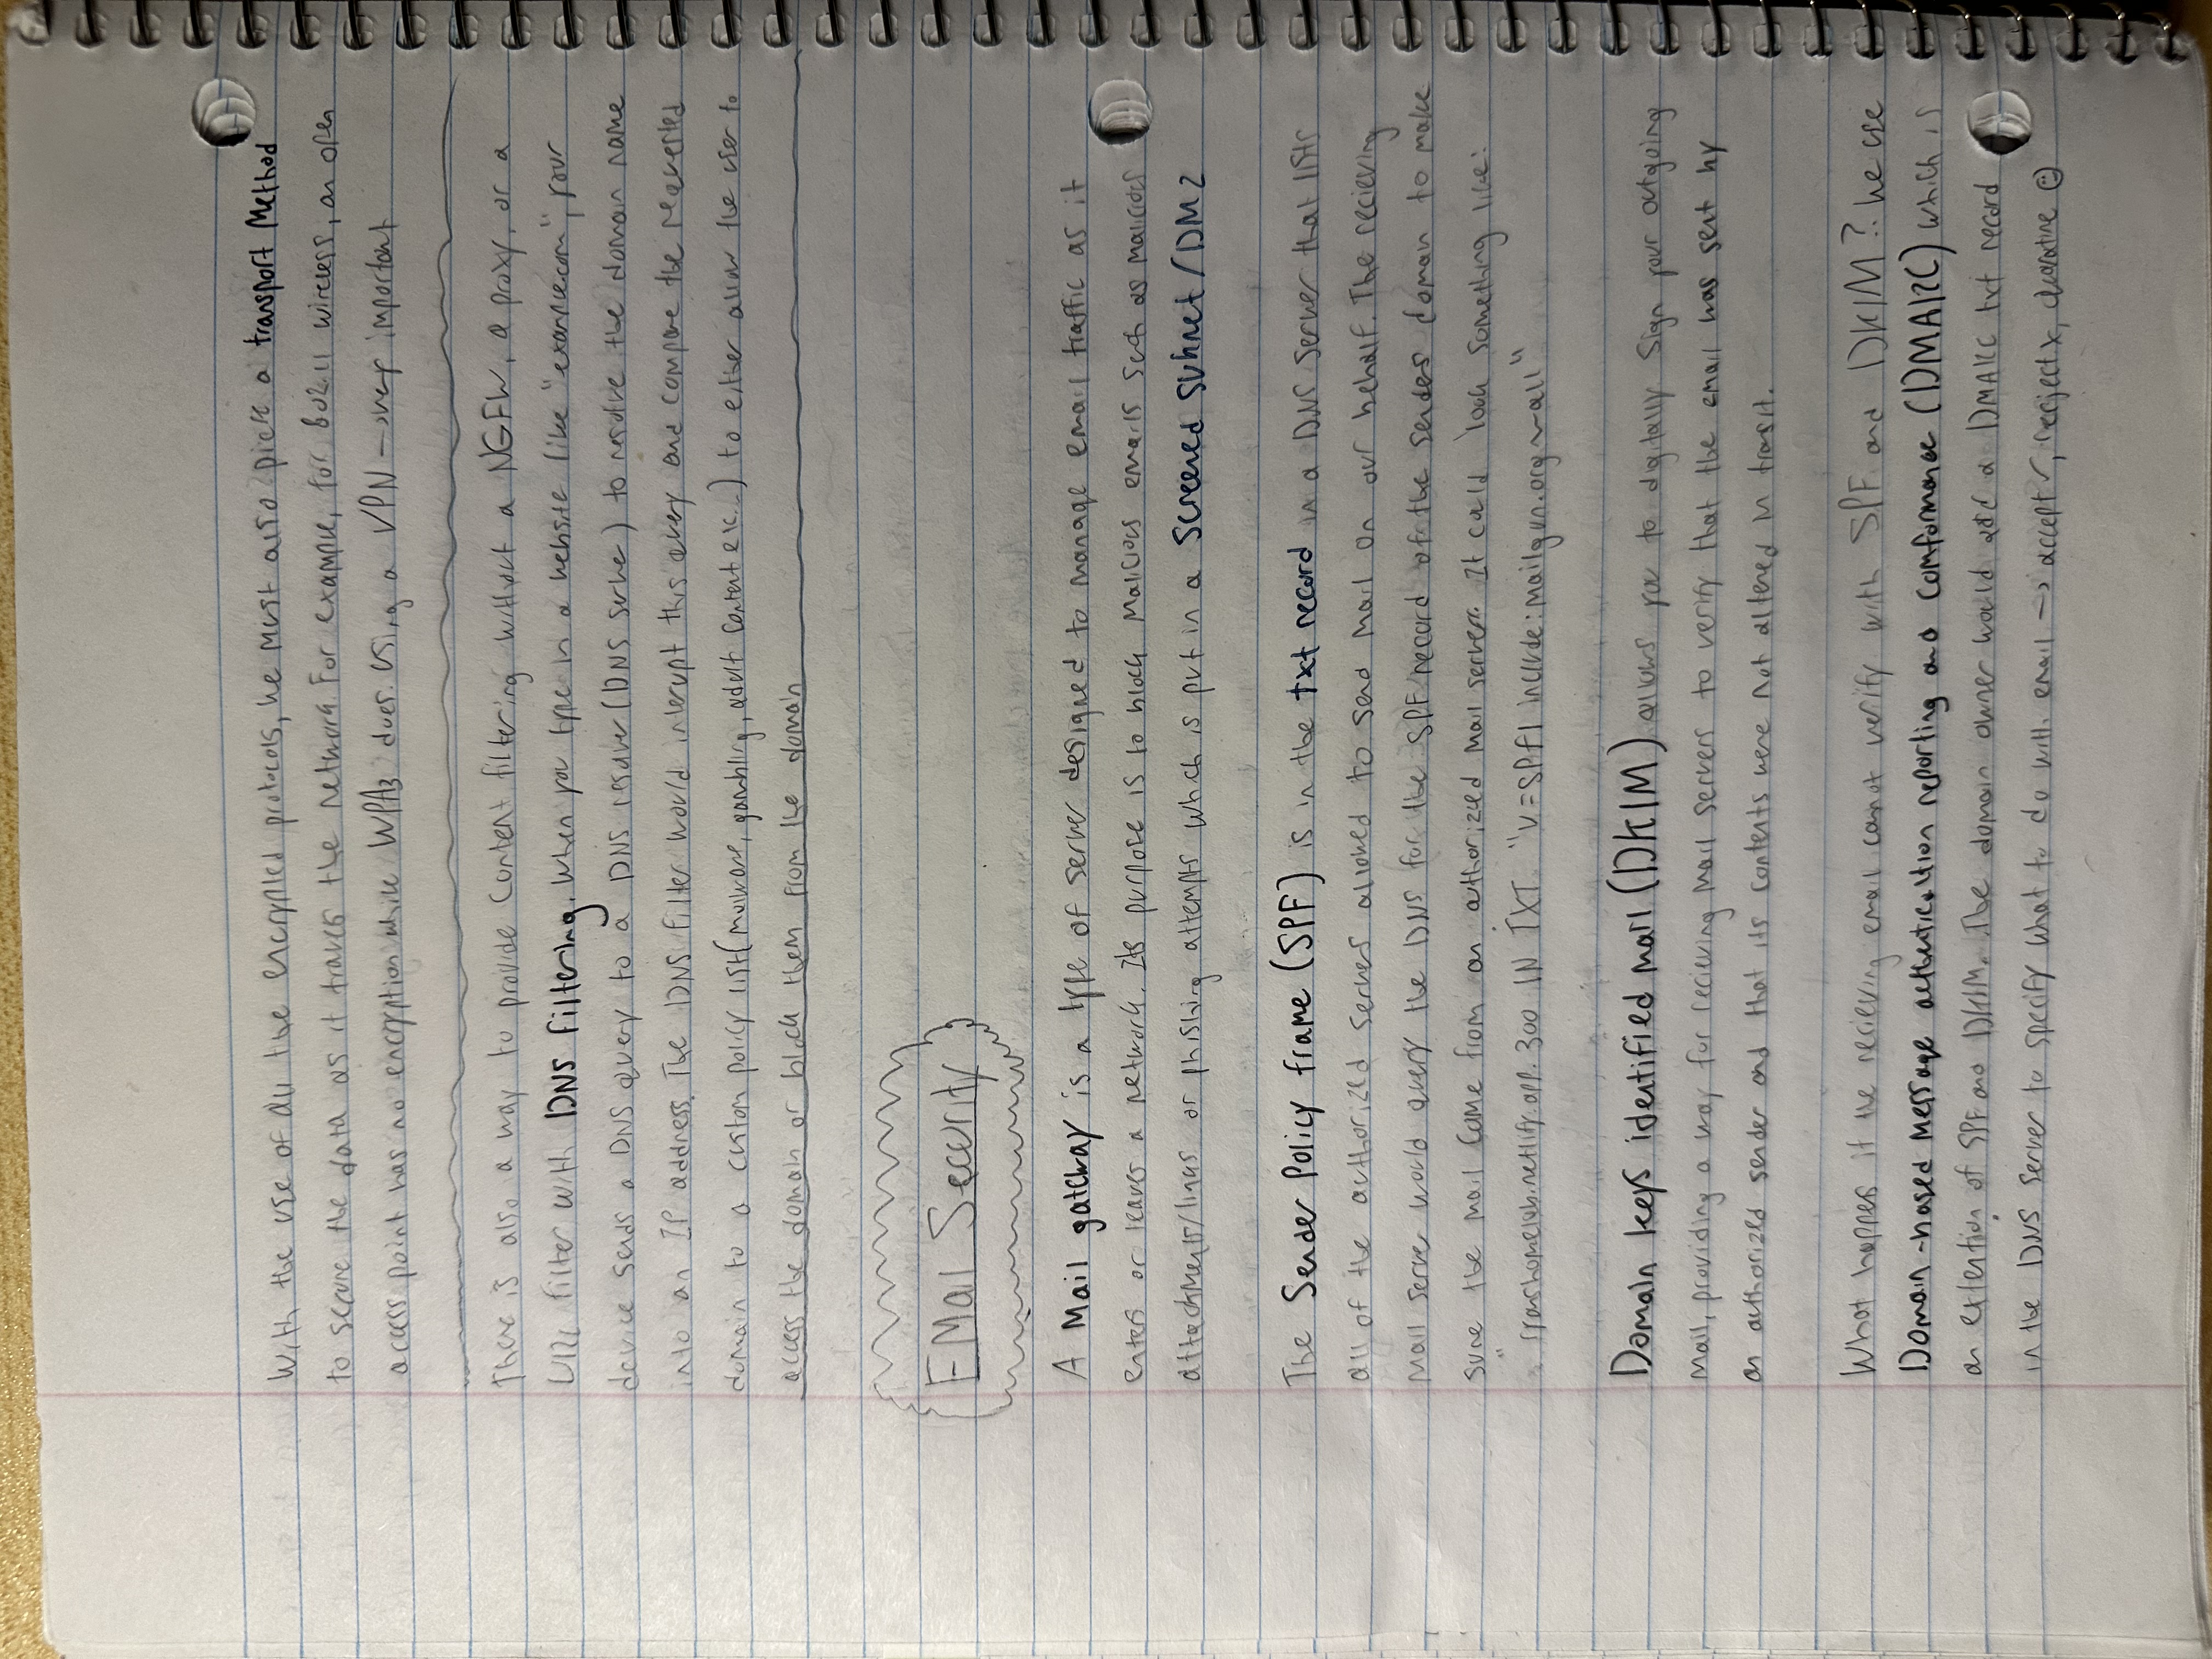 With the use of all the encrypted protocols, we must also pick a transport Method
to secure the data as it travels the network. For example, for 802.11 wireless, an open
access point has no encryption while WPA3 does. Using a VPN → very important
There is also a way to provide content filtering without a NGFW, a proxy, or a
URL filter with DNS filtering. When you type in a website like "example.com", your
device sends a DNS query to a DNS resolver (DNS server) to resolve the domain name
into an IP address. The DNS filter would interupt this query and compare the requested
domain to a custom policy list (malware, gambling, adult content etc...) to either allow the user to
access the domain or block them from the domain
EMail Security
A Mail gateway is a type of server designed to manage email traffic as it
enters or leaves a network. Its purpose is to block malicious emails such as malicious
attachments/links or phishing attempts which is put in a Screened subnet/DMZ
The Sender Policy frame (SPF) is in the txt record in a DNS server that lists
all of the authorized servers allowed to send mail on our behalf. The recieving
mail server would query the DNS for the SPF record of the senders domain to make
sure the mail came from an authorized mail server. It could look something like:
"ryanshomelab.netlify.app. 300 IN TXT "v=spf1 include:mailgun.org ~all"
Domain keys identified mail (DKIM) allows you to digitally sign your outgoing
mail, providing a way for recieving mail servers to verify that the email was sent by
an authorized sender and that its contents were not altered in transit.
What happens if the recieving email cannot verify with SPF and DKIM? We use
Domain-based Message authentication reporting and comformance (DMARC) which is
an extention of SPF and DKIM. The domain owner would add a DMARC txt record
in the DNS server to specify what to do with email → accept ✓, reject x, quaratine ☺